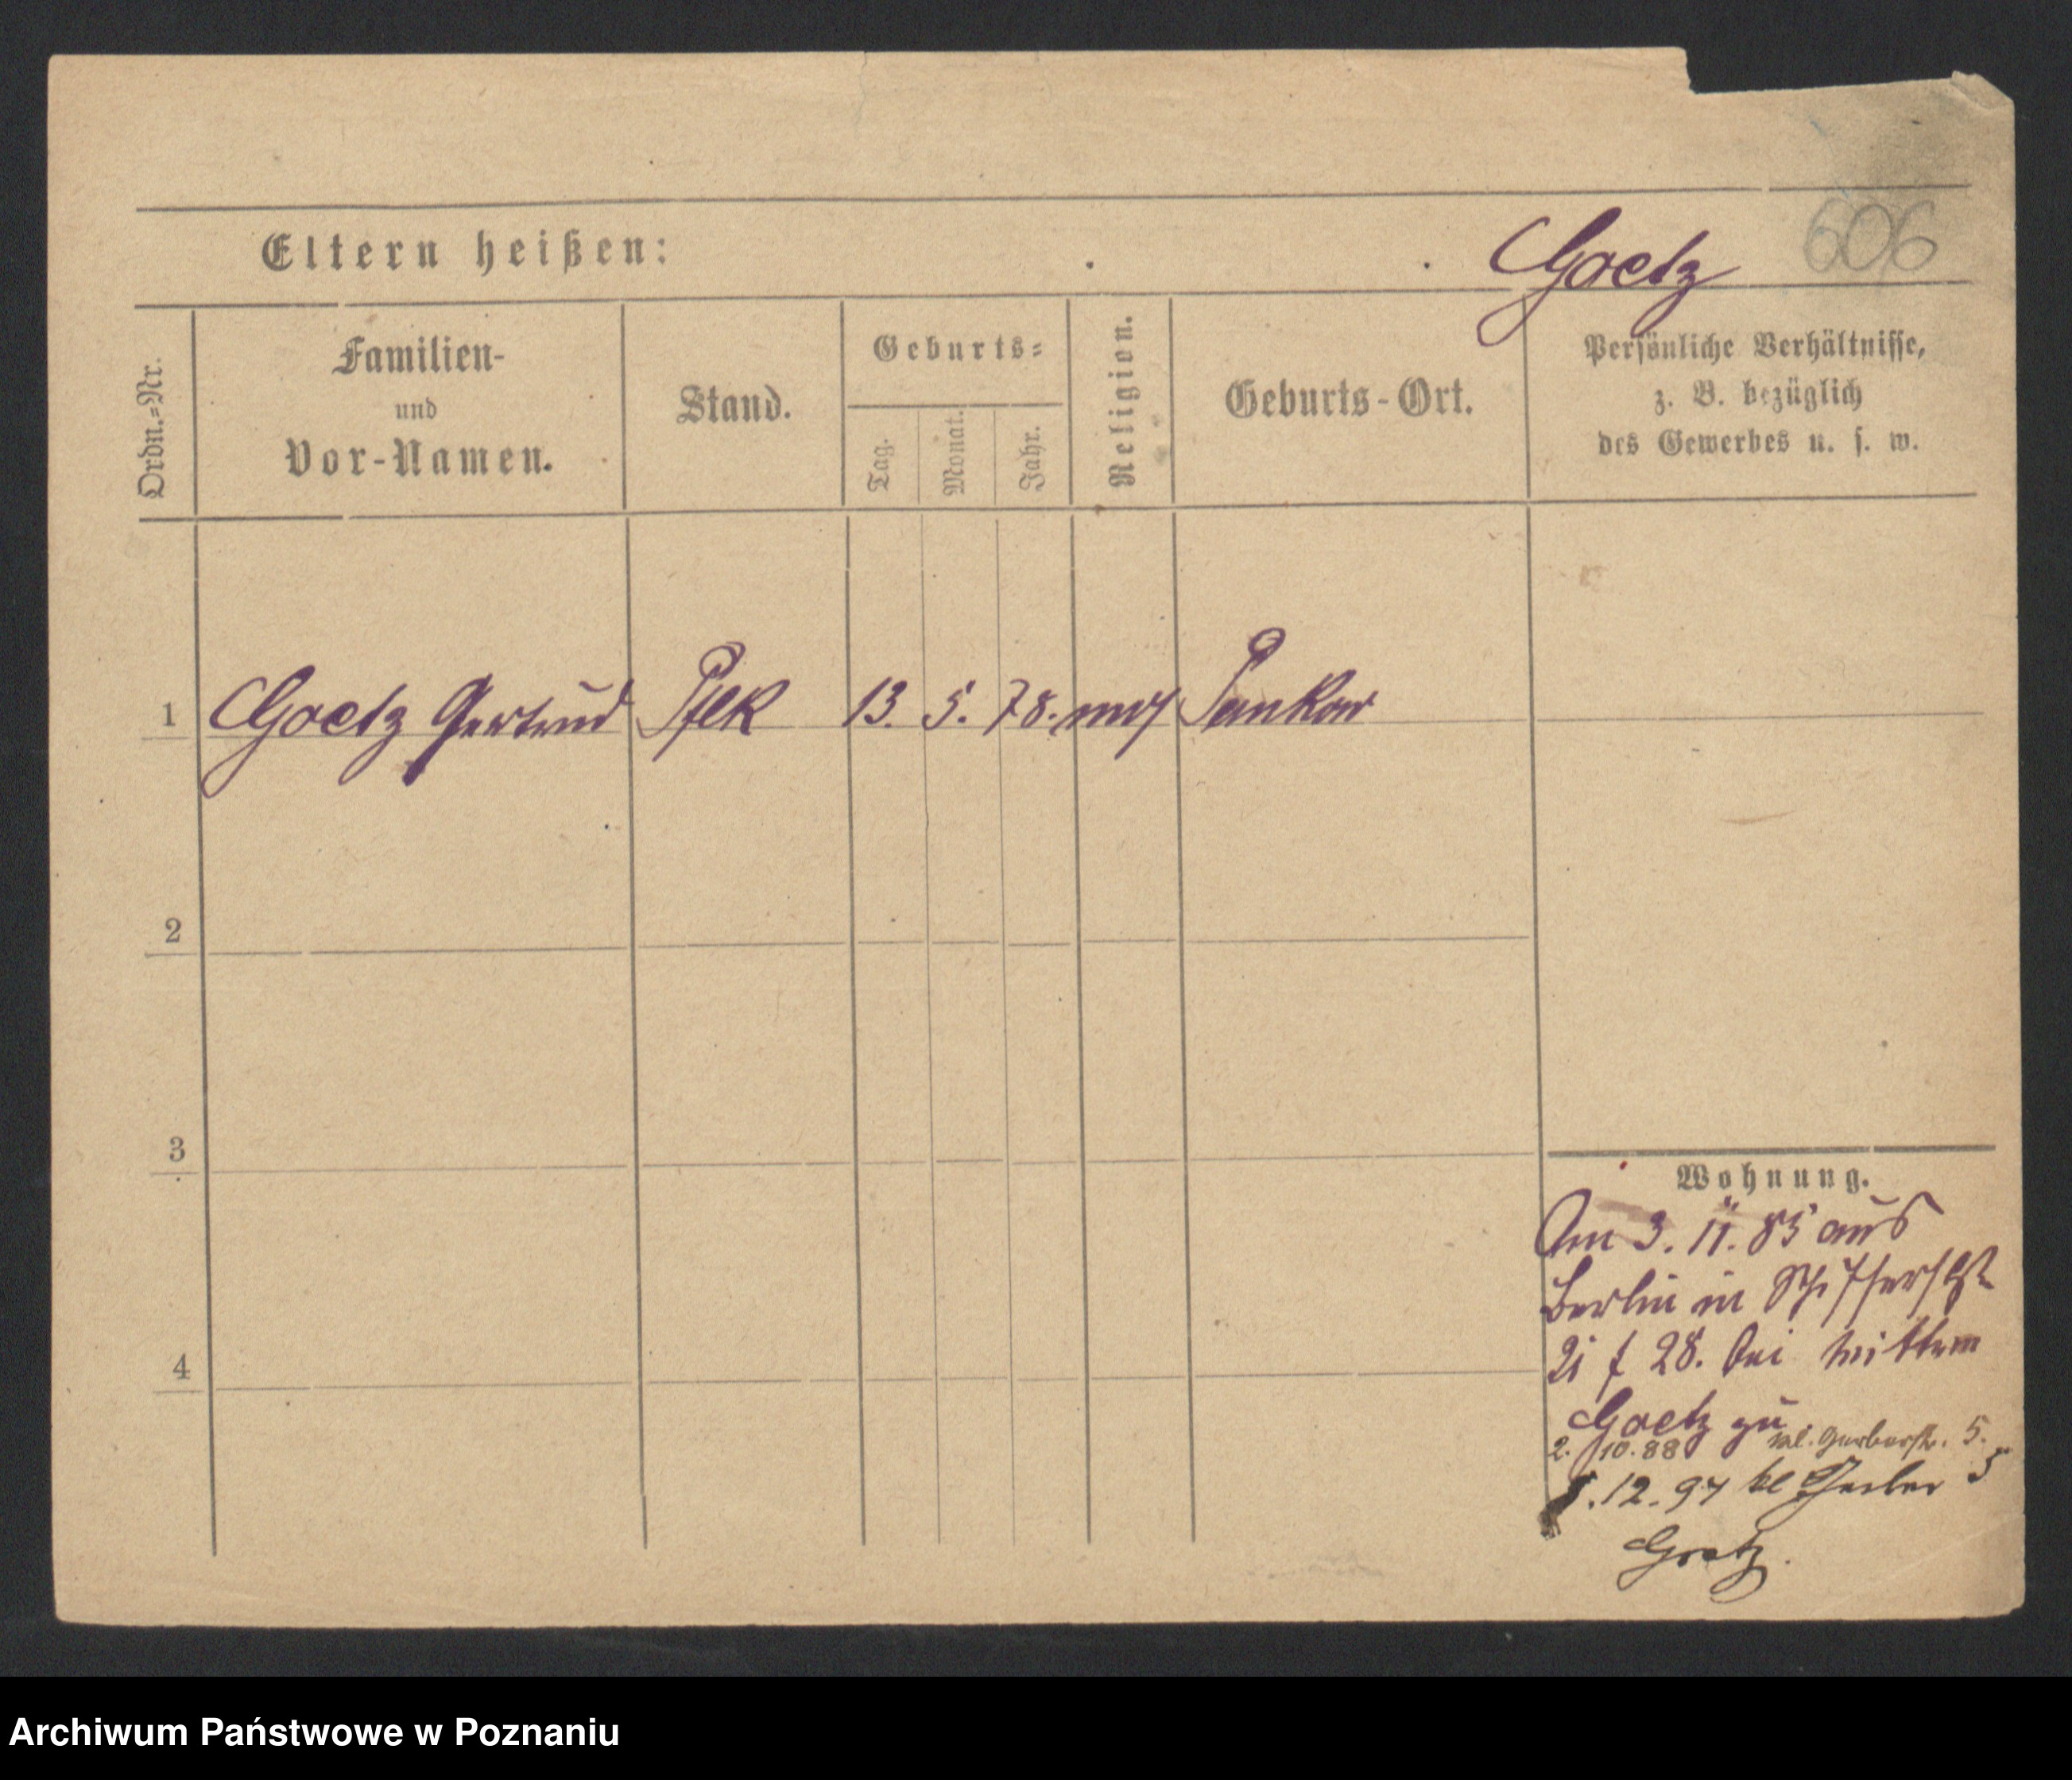 606
Eltern heißen: Goetz
Ordn.=Nr.
Familien-
und
Vor-Namen.
Stand.
Geburts=
Tag.
Monat.
Jahr.
Religion.
Geburts-Ort.
Persönliche Verhältnisse,
z. B. bezüglich
des Gewerbes u. s. w.
1 Goetz Gertrud 13. 5. 78. Pankow
2
3
4
Wohnung.
Am 3. 11. 85 aus
Berlin in
28. bei
Goetz zu
2. 10. 88 kl. Gerberstr. 5.
.12.97 kl Gerber 5
Goetz.
Archiwum Państwowe w Poznaniu